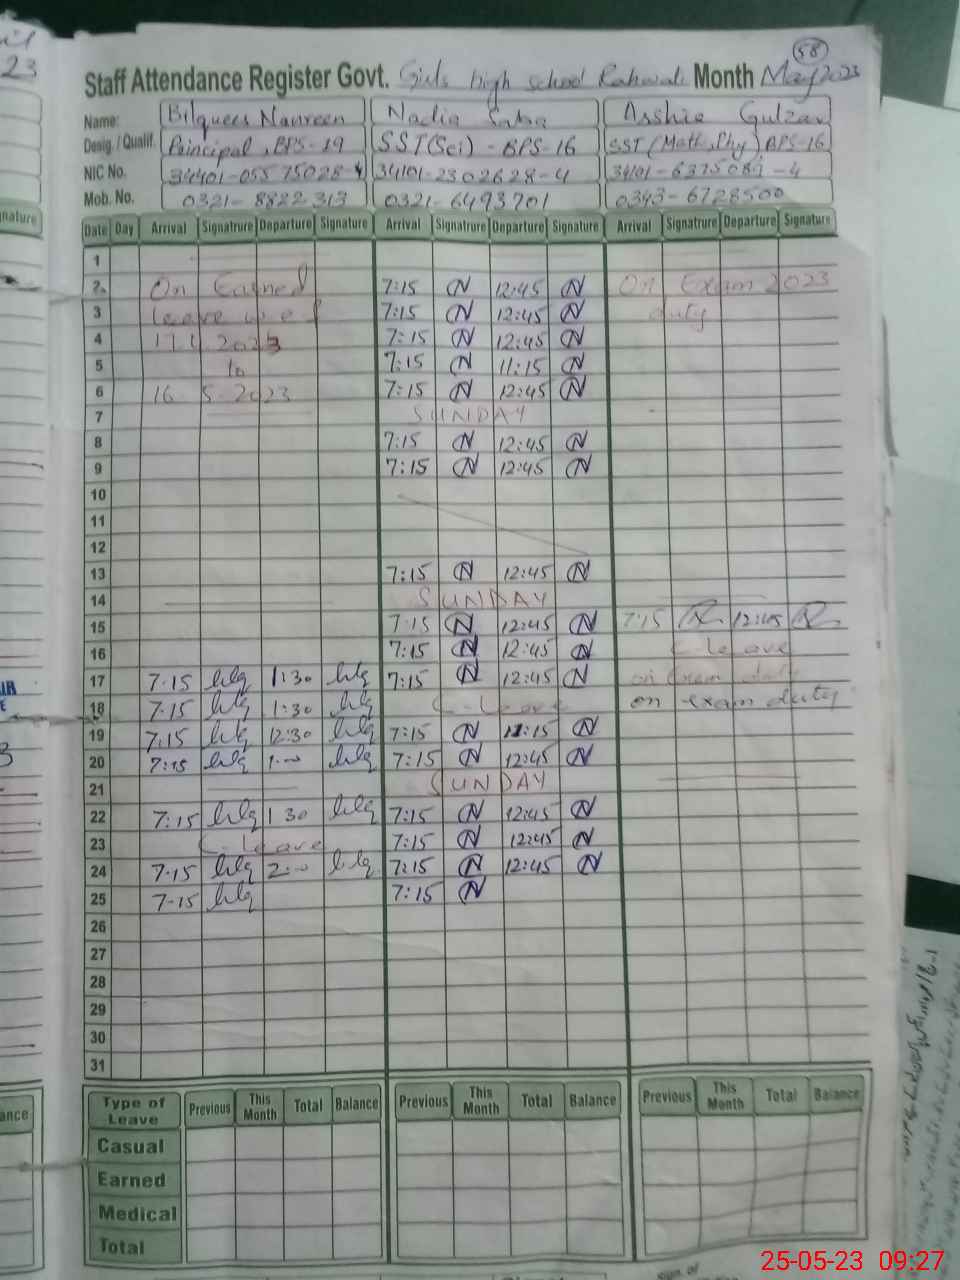 58
Staff Attendance Register Govt. Girls high school Rahwali Month May 2023
Name: Bilquees Nasreen Nadia Saba Asshia Gulzar
Desig. / Qualif. Principal, BPS-19 SST(Sci) - BPS-16 SST (Math, Phy) BPS-16
NIC No. 34101-2302628-4 34101-6375089-4
Mob. No. 0321-8822313 0321-6493701 0343-6728500
Date Day Arrival Signatrure Departure Signature Arrival Signatrure Departure Signature Arrival Signatrure Departure Signature
1
2 On Earned 7:15 N 12:45 N On Exam 2023
3 leave w.e.f 7:15 N 12:45 N duty
4 2023 7:15 N 12:45 N
5 to 7:15 N 11:15 N
6 16 5-2023 7:15 N 12:45 N
7 SUNDAY
8 7:15 N 12:45 N
9 7:15 N 12:45 N
10
11
12
13 7:15 N 12:45 N
14 SUNDAY
15 7:15 N 12:45 N 7:15 12:45
16 7:15 N 12:45 N C-leave
17 7-15 blq 1:30 blq 7:15 N 12:45 N on exam duty
18 7-15 blq 1:30 blq C-Leave on exam duty
19 7:15 blq 12:30 blq 7:15 N 11:15 N
20 7:15 blq 1:00 blq 7:15 N 12:45 N
21 SUNDAY
22 7:15 blq 1 30 blq 7:15 N 12:45 N
23 C-leave 7:15 N 12:45 N
24 7-15 blq 2:00 blq 7:15 N 12:45 N
25 7-15 blq 7:15 N
26
27
28
29
30
31
Type of Leave Previous This Month Total Balance Previous This Month Total Balance Previous This Month Total Balance
Casual
Earned
Medical
Total
25-05-23 09:27